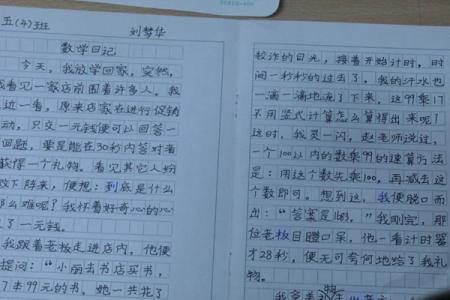 五(4)班 刘梦华
数学日记
今天，我放学回家，突然，
看见一家店前围着许多人。我
边一看，原来店家在进行促销
动，只交一元钱便可以回答一
问题，要是能在30秒内答对者
获得一个礼物。看见其它人纷
败下阵来，便想：到底是什么
么难呢？我怀着好奇心的心
了一元钱。
我跟着老板走进店内。他便
提问：“小丽去书店买书，
17本99元的书。她一共花了
较诈的目光，接着开始计时，时
间一秒秒的过去了，我的汗水也
一滴一滴地流了下来，这99乘17
不用竖式计算怎么算得出来呢？
这时，我灵一闪，赵老师说过，
一个100以内的数乘99的速算方法
是：用这个数先乘100，再减去这
个数即可。想到这，我便脱口而
出：“答案是1683。”我刚完，那
位老板目瞪口呆，他一看计时器
才28秒，便无可奈何地给了我礼
物。